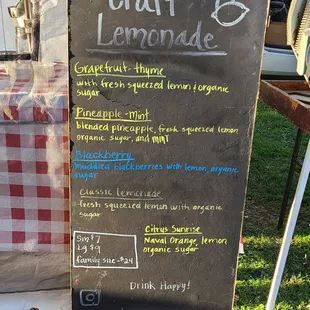 Craft
Lemonade
Grapefruit-thyme
with fresh squeezed lemon & organic
sugar
Pineapple-Mint
blended pineapple, fresh squeezed lemon
organic sugar, and mint
Blackberry
Muddled blackberries with lemon, organic
sugar
Classic lemonade
fresh squeezed lemon with organic
sugar
Sm $7
Lg $9
family size - $24
Citrus Sunrise
Naval Orange, lemon
organic sugar
Drink Happy!